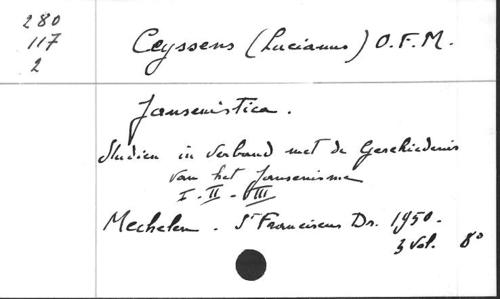 280
117
2
Ceyssens (Lucianus) O.F.M.
Jansenistica.
Studien in verband met de Geschiedenis
van het Jansenisme
I-II-III
Mechelen. St Franciscus Dr. 1950-
3 vol. 8°